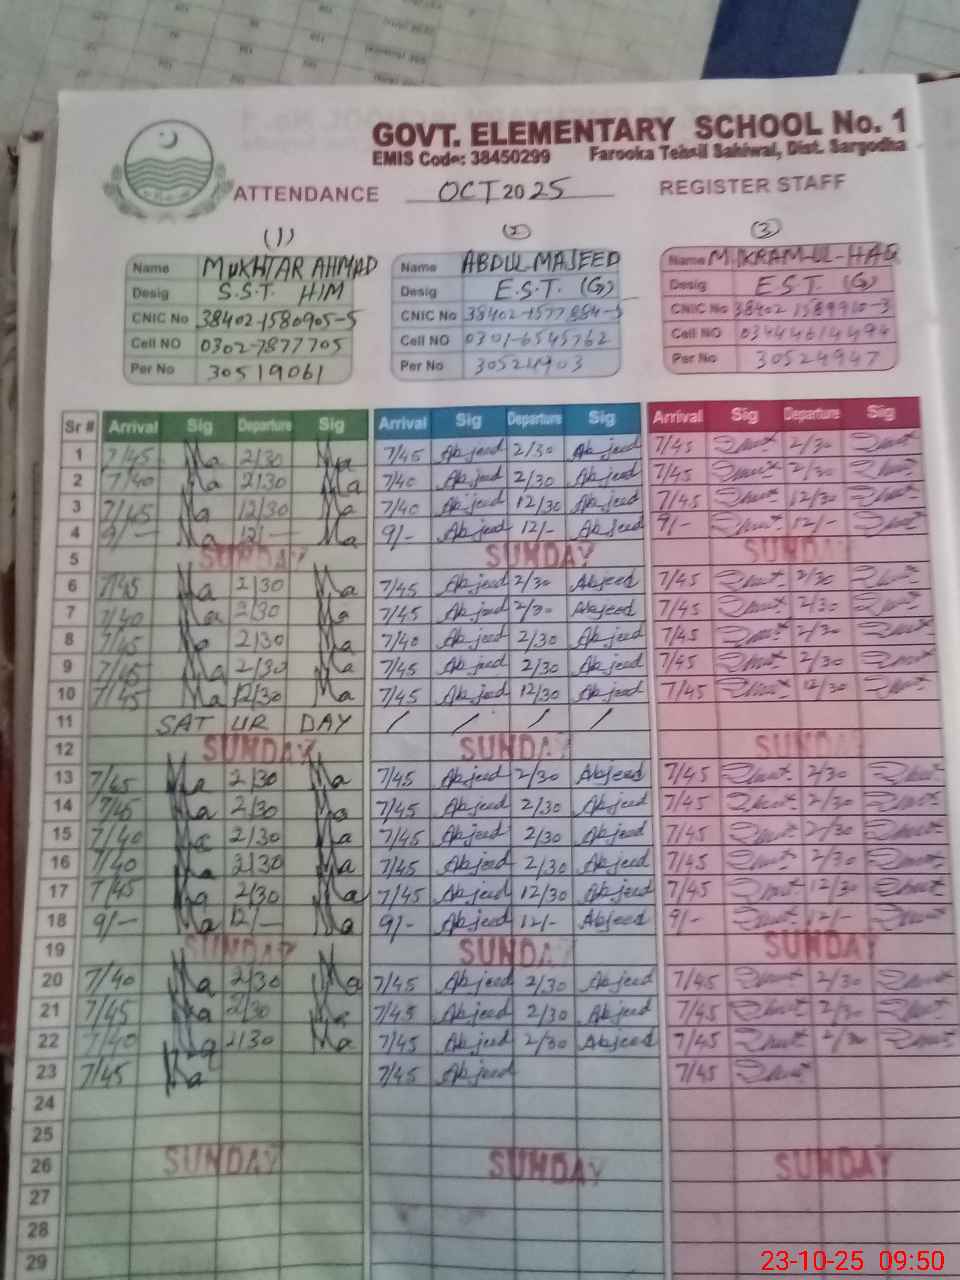 GOVT. ELEMENTARY SCHOOL No. 1
EMIS Code: 38450299 Farooka Tehsil Sahiwal, Dist. Sargodha
ATTENDANCE OCT 2025 REGISTER STAFF
(1) (2) (3)
Name MUKHTAR AHMAD Name ABDUL MAJEED Name M. IKRAM-UL-HAQ
Desig S.S.T. H/M Desig E.S.T. (G) Desig E.S.T. (G)
CNIC No 38402-1580905-5 CNIC No 38402-1577884-5 CNIC No 38402 1589910-3
Cell NO 0302-7877705 Cell NO 0301-6545762 Cell NO 03444614494
Per No 30519061 Per No 30524903 Per No 30524947
Sr # Arrival Sig Departure Sig Arrival Sig Departure Sig Arrival Sig Departure Sig
1 7/45 Ma 2/30 Ma 7/45 Abjeed 2/30 Abjeed 7/45 2/30
2 7/40 Ma 2/30 Ma 7/40 Abjeed 2/30 Abjeed 7/45 2/30
3 7/45 Ma 12/30 Ma 7/40 Abjeed 12/30 Abjeed 7/45 12/30
4 9/- Ma 12/- Ma 9/- Abjeed 12/- Abjeed 9/- 12/-
5 SUNDAY SUNDAY SUNDAY
6 7/45 Ma 2/30 Ma 7/45 Abjeed 2/30 Abjeed 7/45 2/30
7 7/40 Ma 2/30 Ma 7/45 Abjeed 2/30 Abjeed 7/45 2/30
8 7/45 Ma 2/30 Ma 7/40 Abjeed 2/30 Abjeed 7/45 2/30
9 7/45 Ma 2/30 Ma 7/45 Abjeed 2/30 Abjeed 7/45 2/30
10 7/45 Ma 12/30 Ma 7/45 Abjeed 12/30 Abjeed 7/45 12/30
11 SAT UR DAY / / / /
12 SUNDAY SUNDAY SUNDAY
13 7/45 Ma 2/30 Ma 7/45 Abjeed 2/30 Abjeed 7/45 2/30
14 7/45 Ma 2/30 Ma 7/45 Abjeed 2/30 Abjeed 7/45 2/30
15 7/40 Ma 2/30 Ma 7/45 Abjeed 2/30 Abjeed 7/45 2/30
16 7/40 Ma 2/30 Ma 7/45 Abjeed 2/30 Abjeed 7/45 2/30
17 7/45 Ma 2/30 Ma 7/45 Abjeed 12/30 Abjeed 7/45 12/30
18 9/- Ma 12/- Ma 9/- Abjeed 12/- Abjeed 9/- 12/-
19 SUNDAY SUNDAY SUNDAY
20 7/40 Ma 2/30 Ma 7/45 Abjeed 2/30 Abjeed 7/45 2/30
21 7/45 Ma 2/30 Ma 7/45 Abjeed 2/30 Abjeed 7/45 2/30
22 7/40 Ma 2/30 Ma 7/45 Abjeed 2/30 Abjeed 7/45 2/30
23 7/45 Ma 7/45 Abjeed 7/45
24
25
26 SUNDAY SUNDAY SUNDAY
27
28
29
23-10-25 09:50